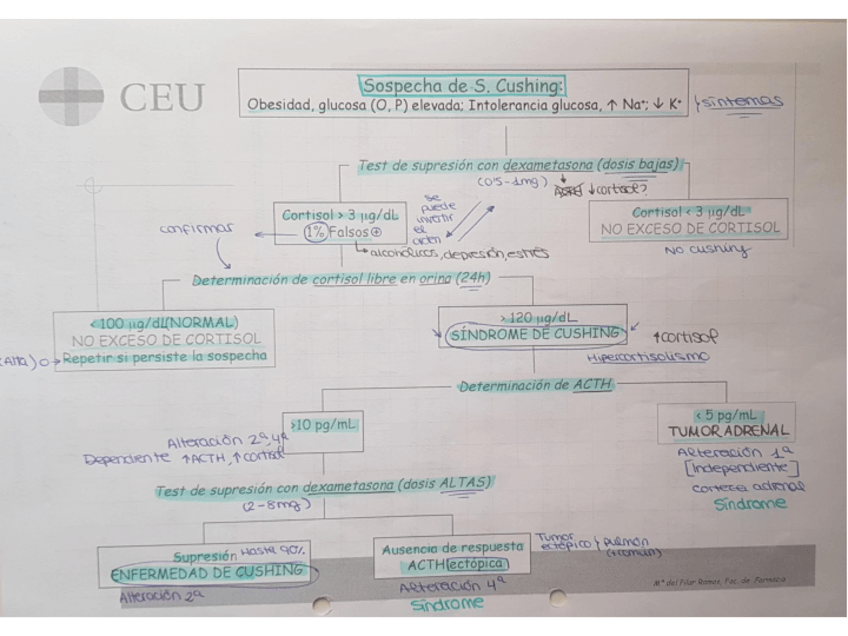 CEU
Sospecha de S. Cushing:
Obesidad, glucosa (O, P) elevada; Intolerancia glucosa, ↑ Na⁺; ↓ K⁺
síntomas
Test de supresión con dexametasona (dosis bajas)
(0'5-1mg)
↓cortisol?
Cortisol > 3 µg/dL
1% Falsos ⊕
confirmar
se puede invertir el orden
alcohólicos, depresión, estrés
Cortisol < 3 µg/dL
NO EXCESO DE CORTISOL
No cushing
Determinación de cortisol libre en orina (24h)
<100 µg/dL(NORMAL)
NO EXCESO DE CORTISOL
(Alta) Repetir si persiste la sospecha
>120 µg/dL
SÍNDROME DE CUSHING
↑cortisol
Hipercortisolismo
Determinación de ACTH
>10 pg/mL
Alteración 2ª, 4ª
Dependiente ↑ACTH, ↑cortisol
< 5 pg/mL
TUMOR ADRENAL
Alteración 1ª
[Independiente]
corteza adrenal
Síndrome
Test de supresión con dexametasona (dosis ALTAS)
(2-8mg)
Supresión Hasta 90%
ENFERMEDAD DE CUSHING
Alteración 2ª
Ausencia de respuesta
ACTH(ectópica)
Alteración 4ª
Síndrome
Tumor ectópico
pulmón
(+común)
Mª del Pilar Ramos, Fac. de Farmacia